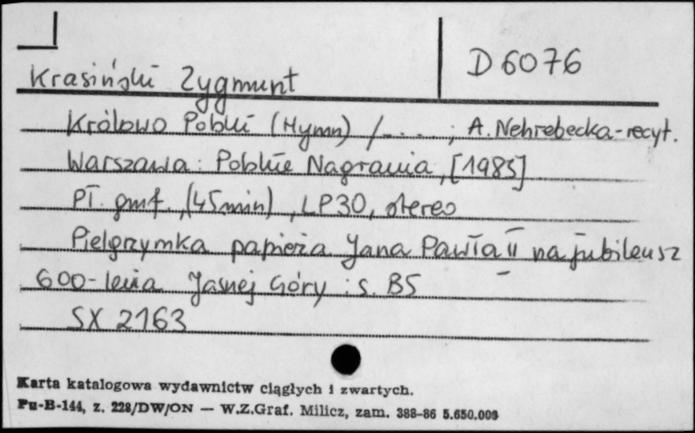 D 6076
Krasiński Zygmunt
Królowo Polski (Hymn) / . . . . ; A. Nehrebecka - recyt.
Warszawa : Polskie Nagrania, [1983]
Pł. gmf., (45 min), LP30, stereo
Pielgrzymka papieża Jana Pawła II na jubileusz
600-lecia Jasnej Góry : s. B5
SX 2163
Karta katalogowa wydawnictw ciągłych i zwartych.
Pu-B-144, z. 228/DW/ON — W.Z.Graf. Milicz, zam. 388-86 5.650.000